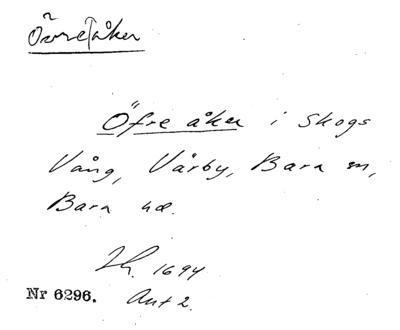 Övre|åker
Öfre åker i Skogs
Vång, Vårby, Bara sn,
Bara hd.
Lh. 1694
Nr 6296. Ant 2.